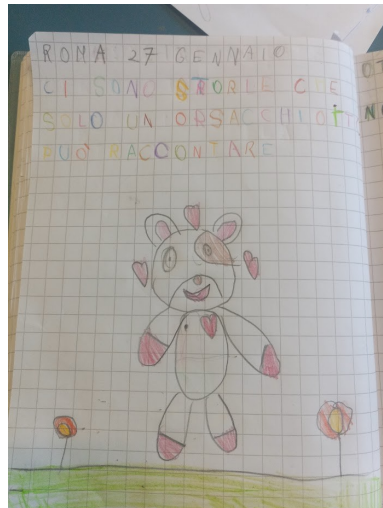 ROMA 27 GENNAIO
CI SONO STORIE CHE
SOLO UN ORSACCHIOT
PUÒ RACCONTARE